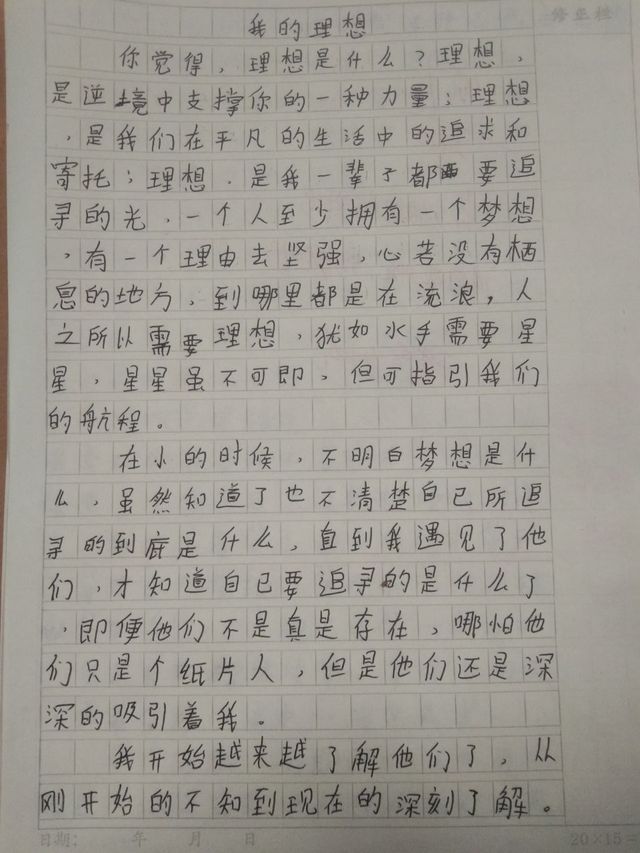 修正栏
我的理想
你觉得，理想是什么？理想，
是逆境中支撑你的一种力量；理想
，是我们在平凡的生活中的追求和
寄托；理想，是我一辈子都要追
寻的光，一个人至少拥有一个梦想
，有一个理由去坚强，心若没有栖
息的地方，到哪里都是在流浪，人
之所以需要理想，犹如水手需要星
星，星星虽不可即，但可指引我们
的航程。
在小的时候，不明白梦想是什
么，虽然知道了也不清楚自己所追
寻的到底是什么，直到我遇见了他
们，才知道自己要追寻的是什么了
，即便他们不是真是存在，哪怕他
们只是个纸片人，但是他们还是深
深的吸引着我。
我开始越来越了解他们了，从
刚开始的不知到现在的深刻了解。
日期： 年 月 日 20×15=